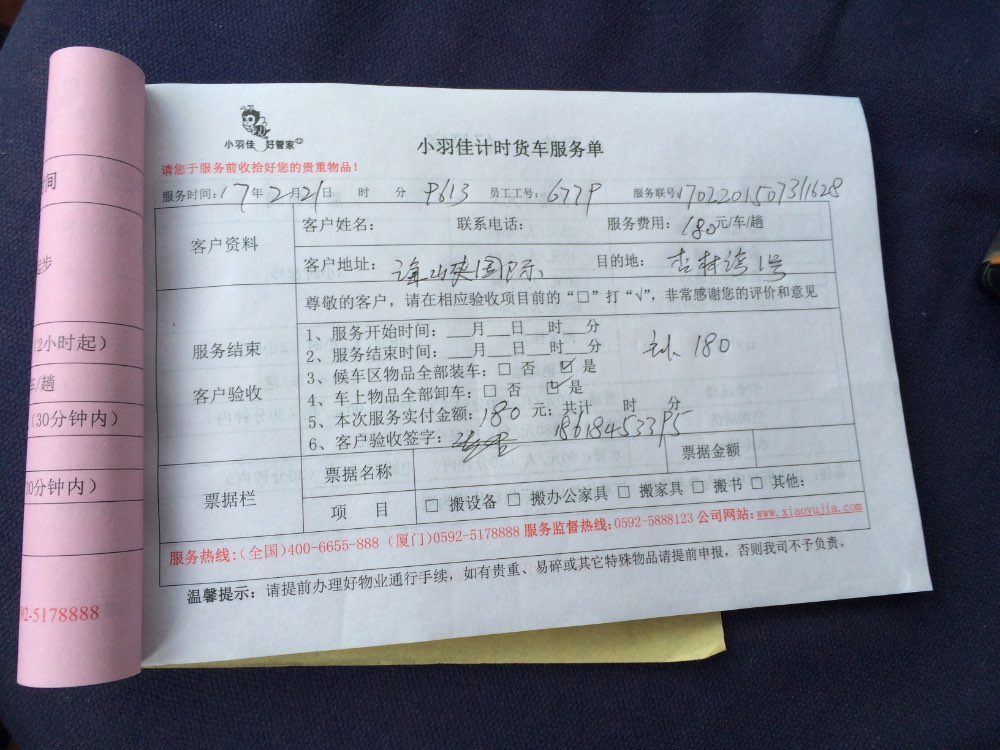 小羽佳 好管家
小羽佳计时货车服务单
请您于服务前收拾好您的贵重物品！
服务时间：17年2月21日 时 分 P613 员工工号：677P 服务联号：1702201507311628
客户资料
客户姓名： 联系电话： 服务费用：180元/车/趟
客户地址： 国际 目的地：杏林湾1号
尊敬的客户，请在相应验收项目前的“□”打“√”，非常感谢您的评价和意见
服务结束
客户验收
1、服务开始时间：___月___日___时___分
2、服务结束时间：___月___日___时___分
3、候车区物品全部装车：□ 否 ☑ 是
4、车上物品全部卸车：□ 否 ☑ 是
180
5、本次服务实付金额：180元；共计 时 分
6、客户验收签字： 186184533P5
票据栏
票据名称 票据金额
项 目 □ 搬设备 □ 搬办公家具 □ 搬家具 □ 搬书 □ 其他：
服务热线：(全国)400-6655-888 (厦门)0592-5178888 服务监督热线：0592-5888123 公司网站：www.xiaoyujia.com
温馨提示：请提前办理好物业通行手续，如有贵重、易碎或其它特殊物品请提前申报，否则我司不予负责。
间
步
(2小时起)
车/趟
(30分钟内)
30分钟内)
92-5178888